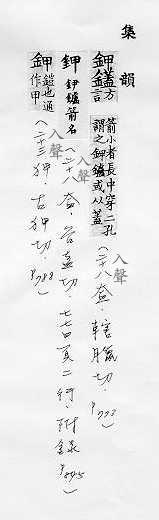 集韻
鉀鑉方言箭小者長中穿二孔謂之鉀鑪或从蓋
入聲
(二十八盍.轄臘切.P773)
鉀鉀鑪箭名
入聲
(二十八盍.谷盍切.七七四頁二行.附錄P895)
鉀鎧也通作甲
入聲
(三十三狎.古狎切.P788)